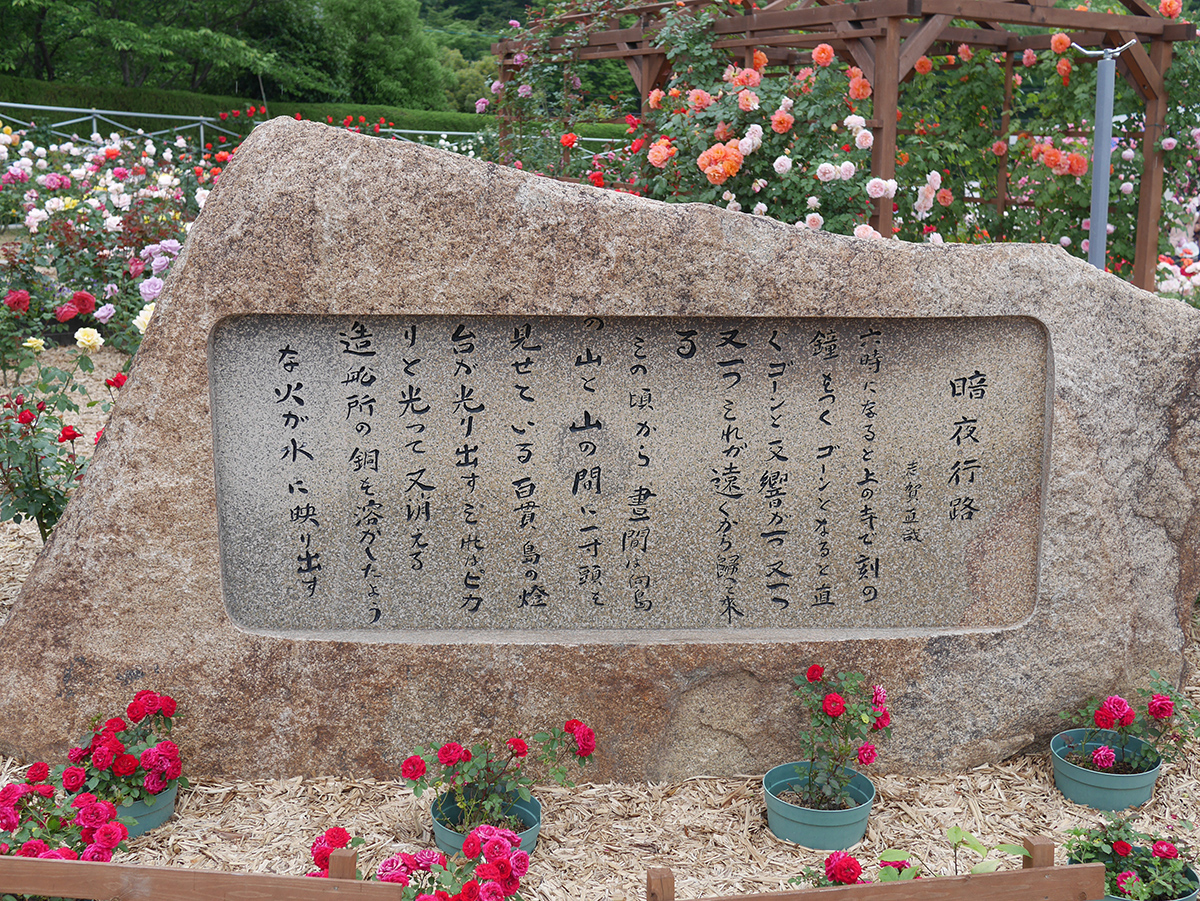 暗夜行路
志賀直哉
六時になると上の寺で刻の
鐘をつく ゴーンとなると直
ぐゴーンと又響が一つ 又一つ
又一つ これが遠くから歸って来
る
この頃から 晝間は向島
の山と山の間に一寸頭を
見せている百貫島の燈
台が光り出す ピカ
リと光って又消える
造船所の銅を溶かしたよう
な火が水に映り出す